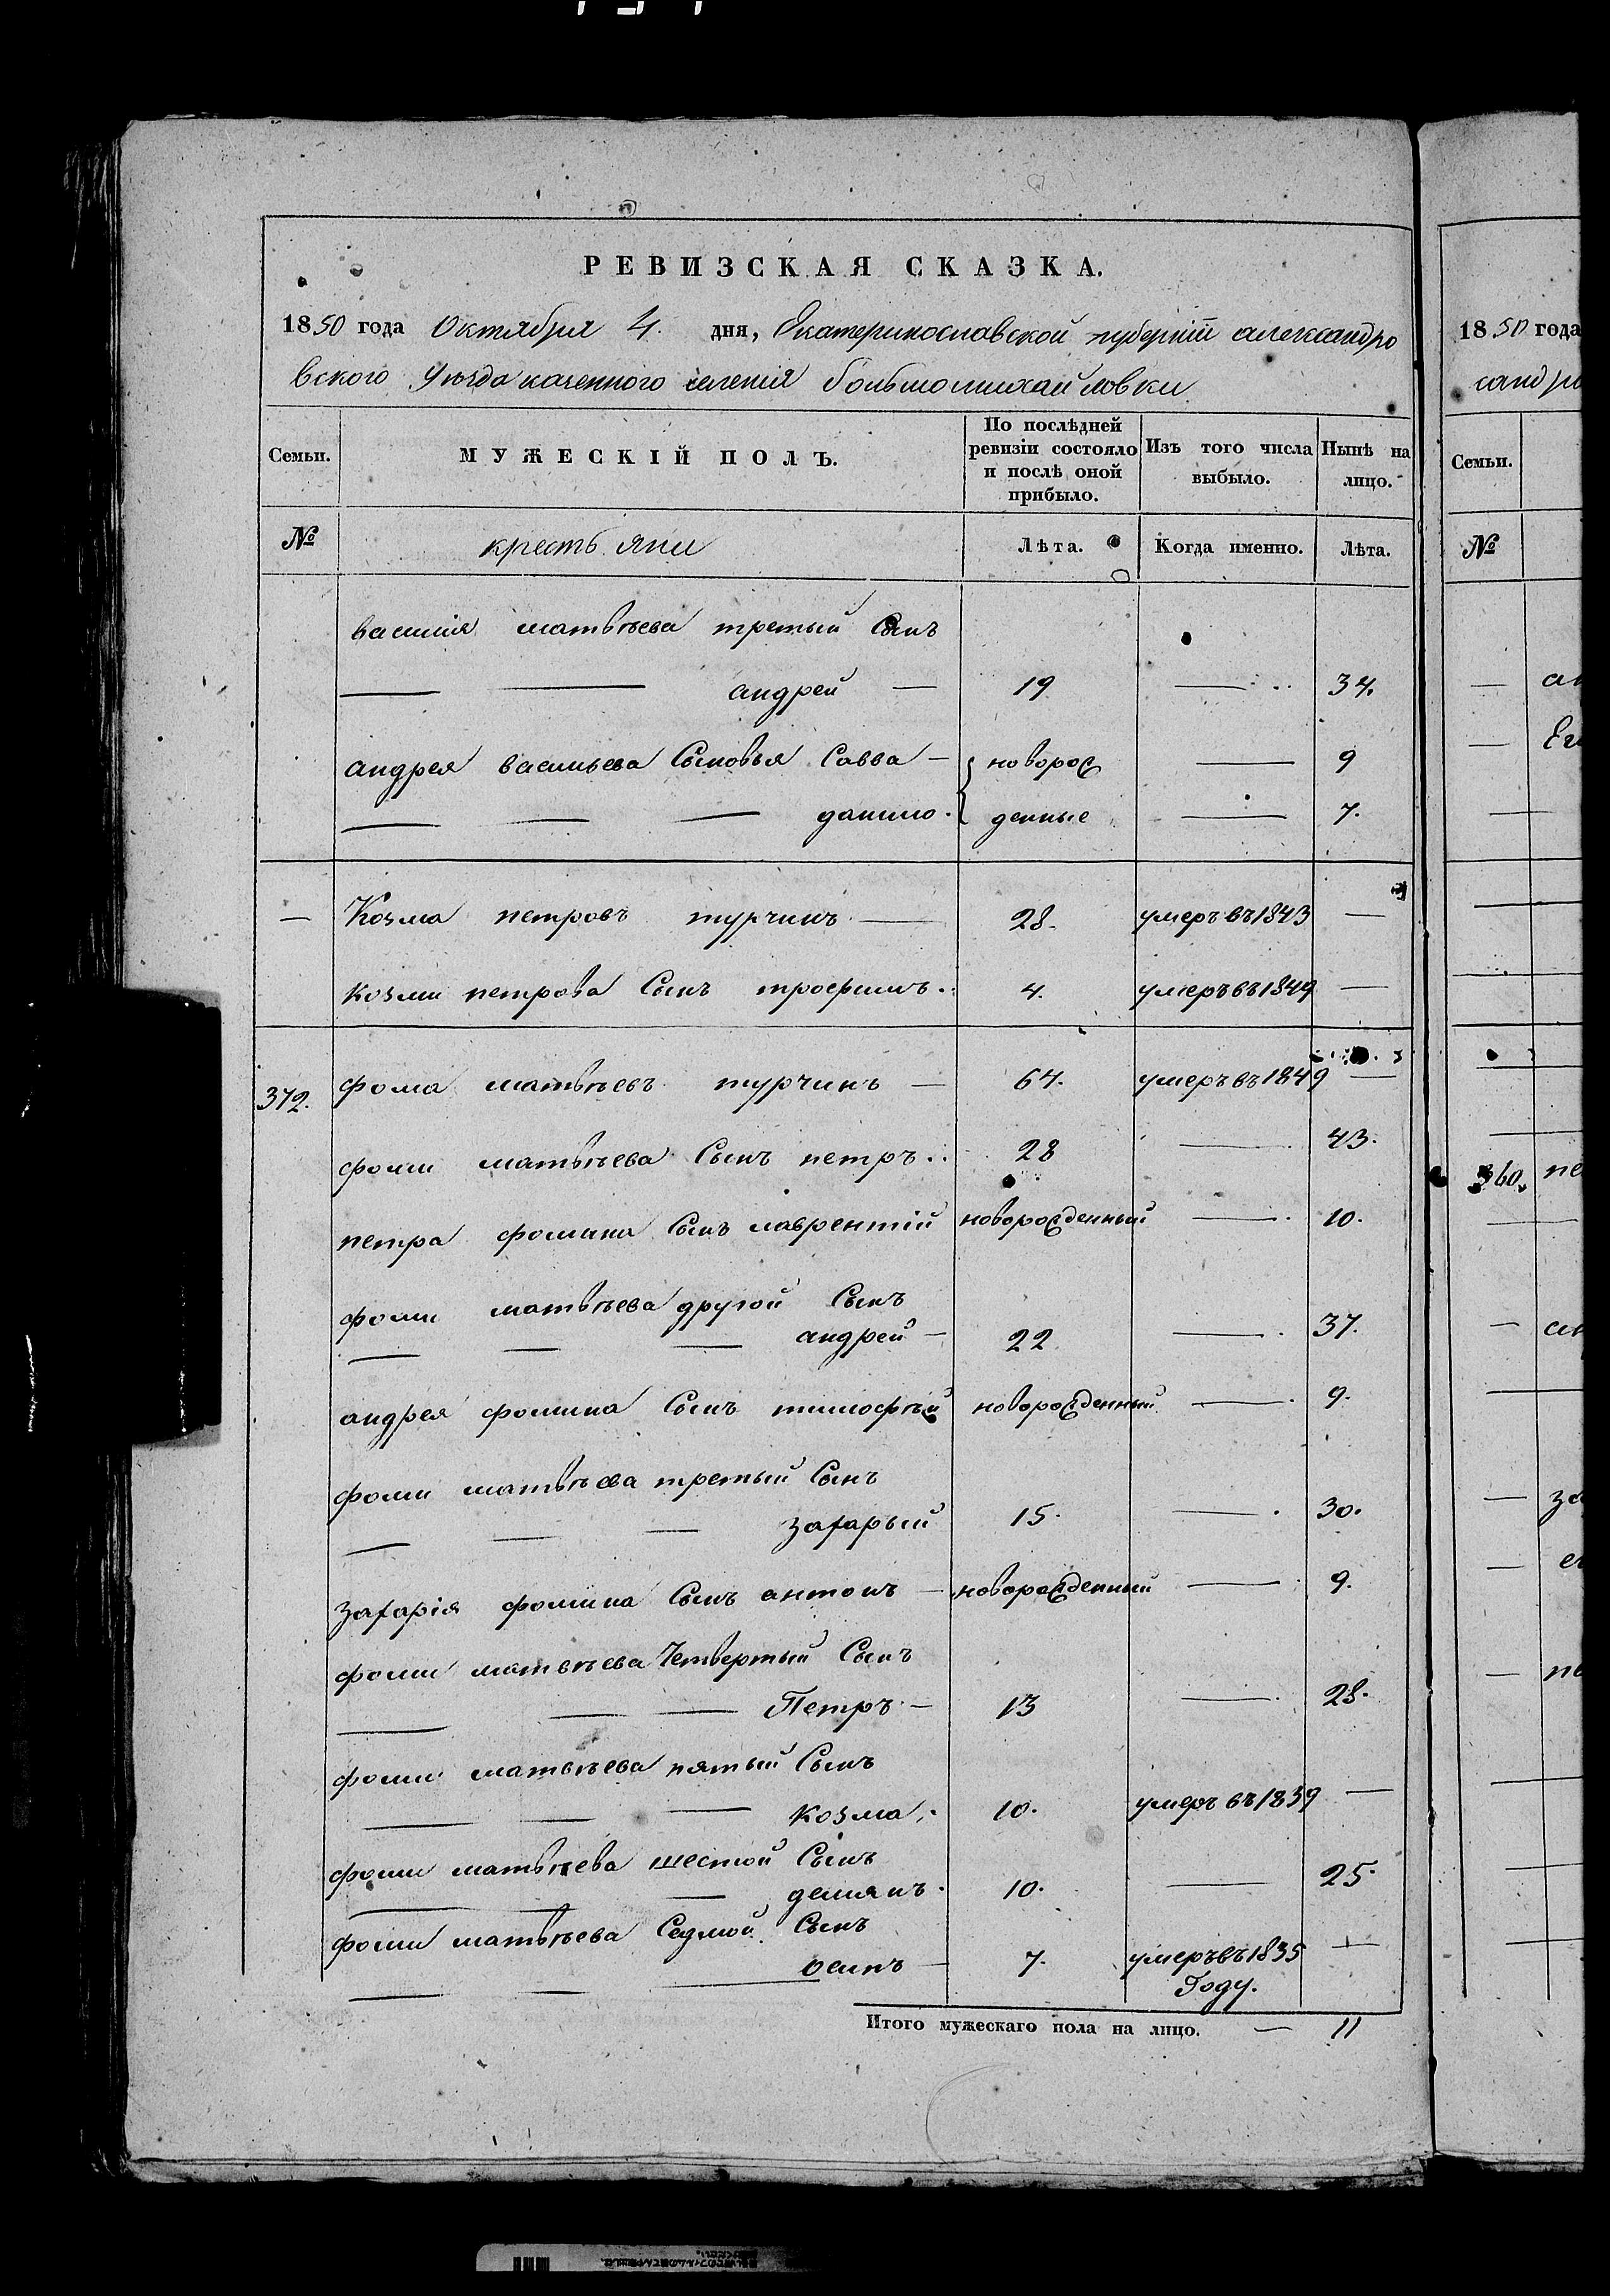 РЕВИЗСКАЯ СКАЗКА.
1850 года Октября 4. дня, Екатеринославской губерніи александро
вского Уезда казенного селенія большомихайловки
Семьи. МУЖЕСКІЙ ПОЛЪ. По послѣдней ревизіи состояло и послѣ оной прибыло. Изъ того числа выбыло. Нынѣ на лицо.
№ крестьяни Лѣта. Когда именно. Лѣта.
василія матвѣева третый Сынъ
андрей — 19 — 34.
андрея васильева Сыновья Савва — новорож — 9
— — — данило. денные — 7.
— Козма петровъ турчинъ — 28. умеръ въ 1843 —
козми петрова Сынъ трофимъ. 4. умеръ въ 1849 —
372. фома матвѣевъ турчинъ — 64. умеръ въ 1849 —
фоми матвѣева Сынъ петръ. 28 — 43.
петра фомина Сынъ лаврентій новорожденный — 10.
фоми матвѣева другой Сынъ
— — — андрей — 22 — 37.
андрея фомина Сынъ тимофѣй новорожденный — 9.
фоми матвѣева третый Сынъ
— — — захарый 15. — 30.
захарія фомина Сынъ антонъ — новорожденный — 9.
фоми матвѣева Четвертый Сынъ
— — — Петръ — 13 — 28.
фоми матвѣева пятый Сынъ
— — — козма. 10. умеръ въ 1839 —
фоми матвѣева шестой Сынъ
— — — демянъ. 10. — 25.
фоми матвѣева Седмой Сынъ
— — — осипъ — 7. умеръ въ 1835 —
Году.
Итого мужескаго пола на лицо. — 11
1850 года
сандро
Семьи.
№
360.